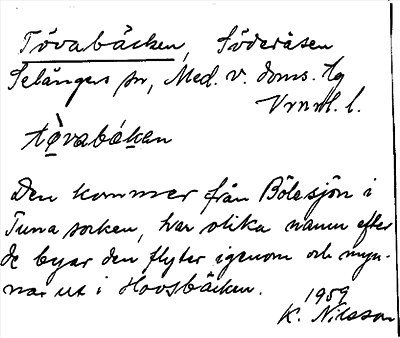 Tövabäcken, Söderåsen
Selångers sn, Med. v. doms. tg
Vrnnl. l.
tø̀vabäkan
Den kommer från Bölesjön i
Tuna socken, har olika namn efter
de byar den flyter igenom och myn-
nar ut i Hovsbäcken.
1959
K. Nilsson